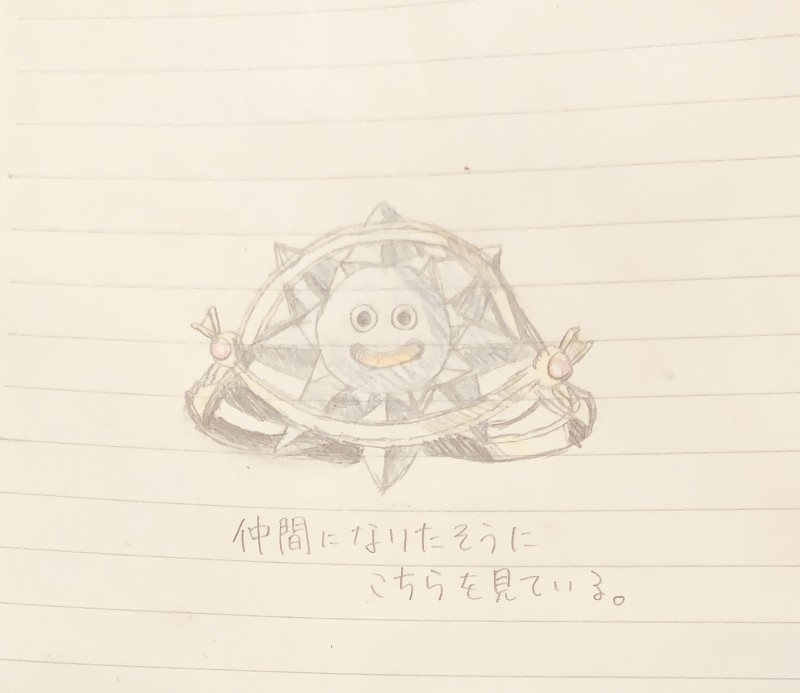 仲間になりたそうに
こちらを見ている。